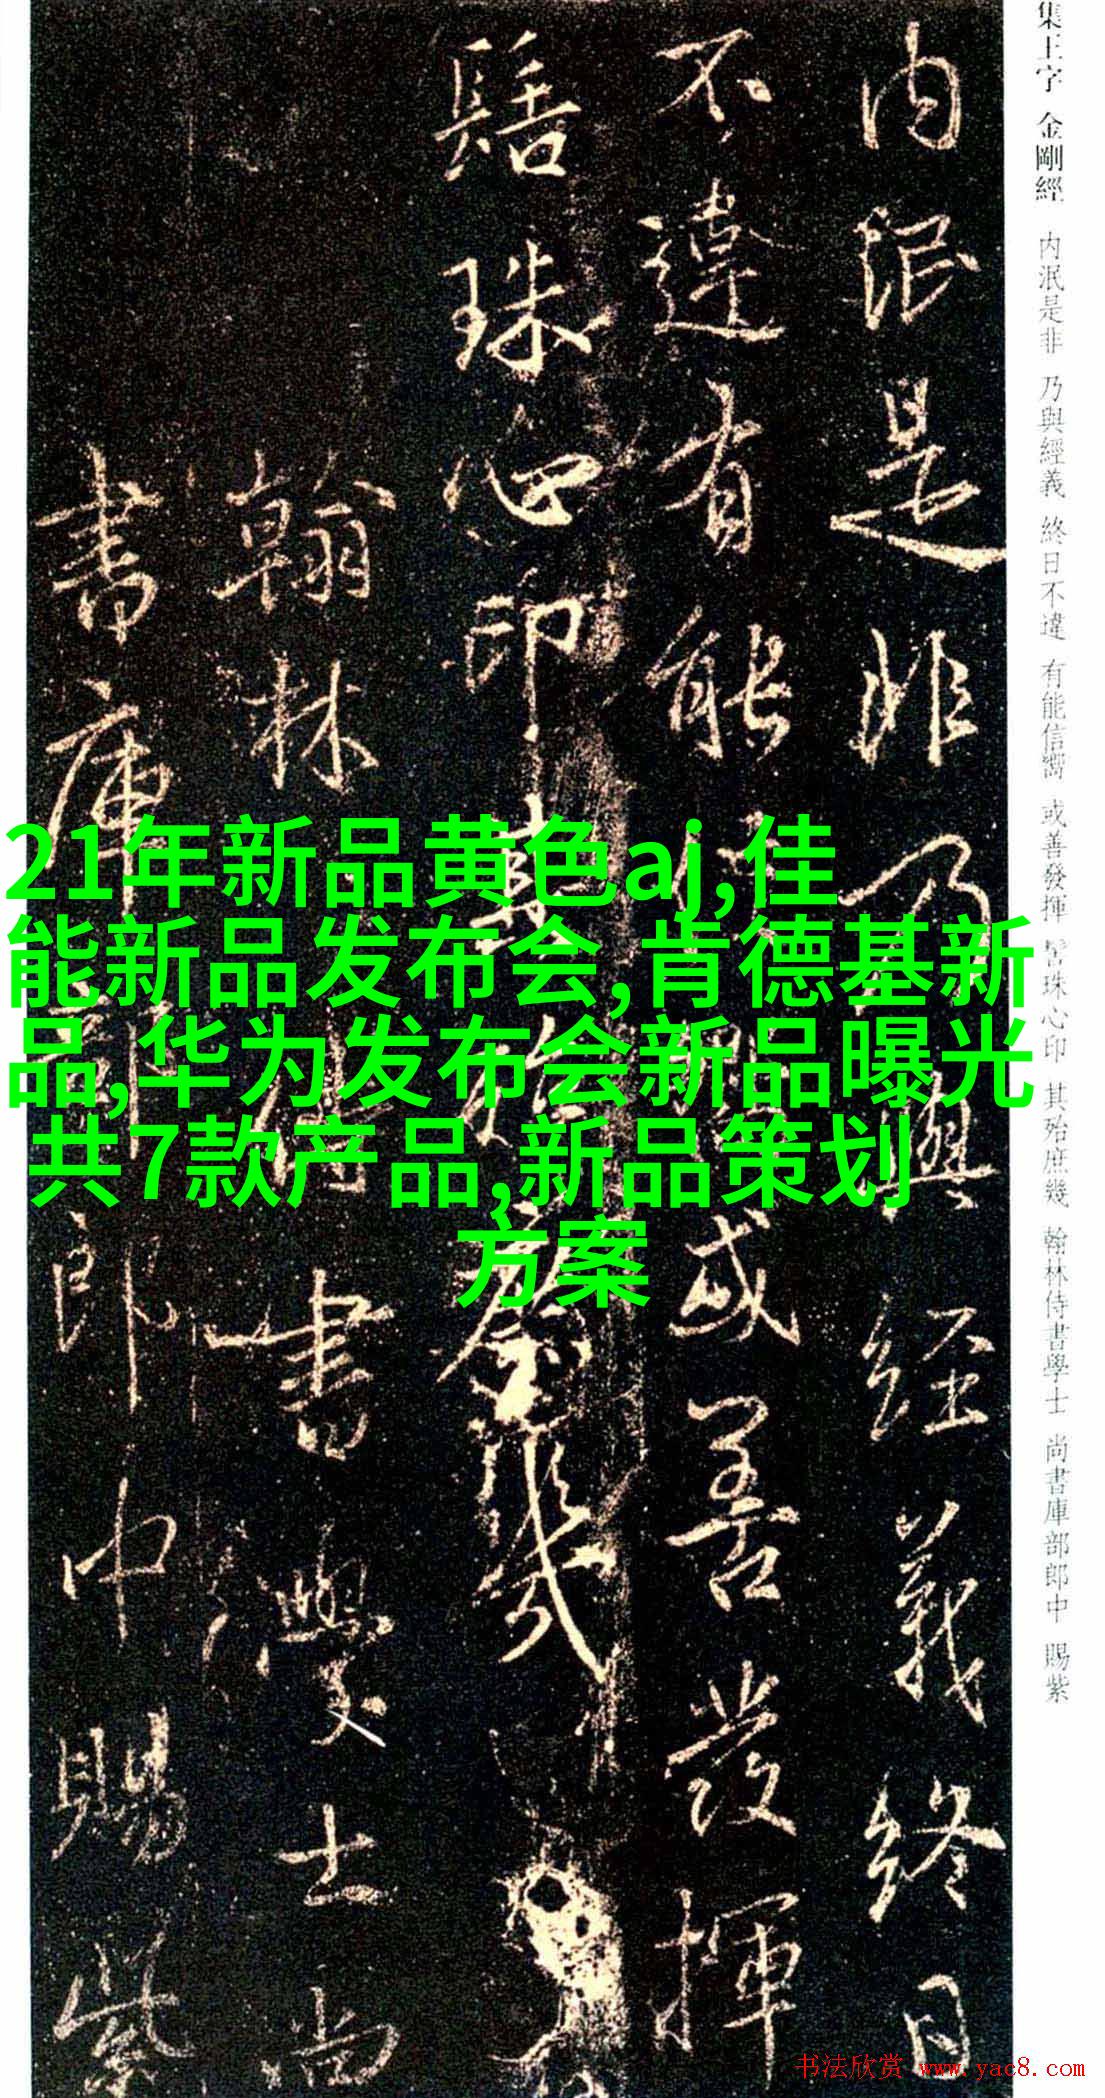 集王字 金剛經 内泯是非 乃與經義 終日不違 有能信嚮 或善發揮 髻珠心印 其殆庶幾 翰林侍書學士 尚書庫部郎中 賜紫
内泯是非乃與經義終日
不違有能信嚮或善發揮
髻珠心印其殆庶幾
翰林侍書學士尚
書庫部郎中賜紫
21年新品黄色aj,佳
能新品发布会,肯德基新
品,华为发布会新品曝光
共7款产品,新品策划
方案
书法欣赏 www.yac8.com